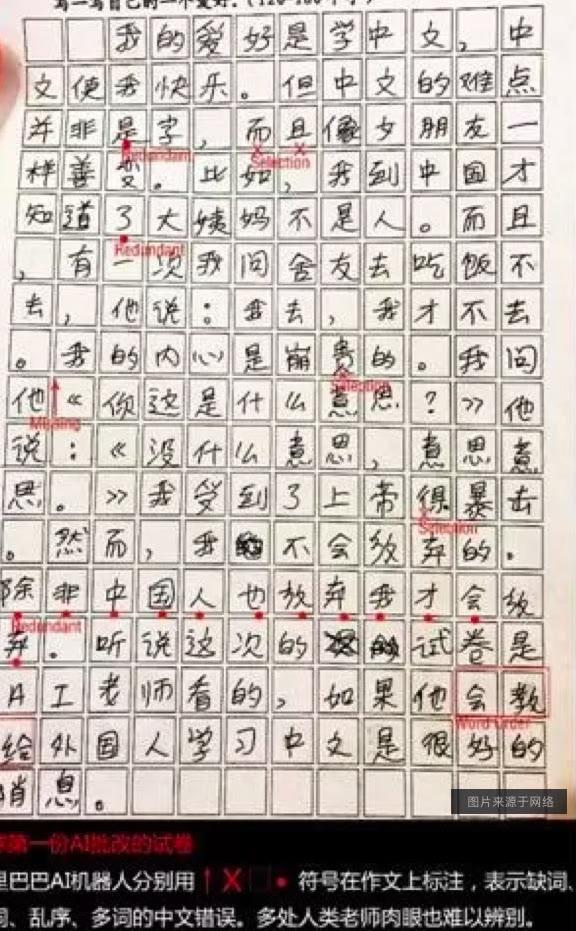 写一写自己的一个爱好.(120-180个字)
我的爱好是学中文,中
文使我快乐。但中文的难点
并非是字,而且像女朋友一
Redundant
Selection
样善变。比如,我到中国才
知道了大姨妈不是人。而且
Redundant
,有一次我问舍友去吃饭不
去,他说:我去,我才不去
。我的内心是崩贵的。我问
Selection
他《你这是什么意思?》他
Missing
说:《没什么意思,意思意
思。》我受到了上帝很暴击
Selection
。然而,我不会放弃的。
除非中国人也放弃我才会放
Redundant
弃。听说这次的试卷是
AI老师看的,如果他会教
Word Order
给外国人学习中文是很好的
消息。
图片来源于网络
第一份AI批改的试卷
里巴巴AI机器人分别用↑X□●符号在作文上标注,表示缺词、
词、乱序、多词的中文错误。多处人类老师肉眼也难以辨别。